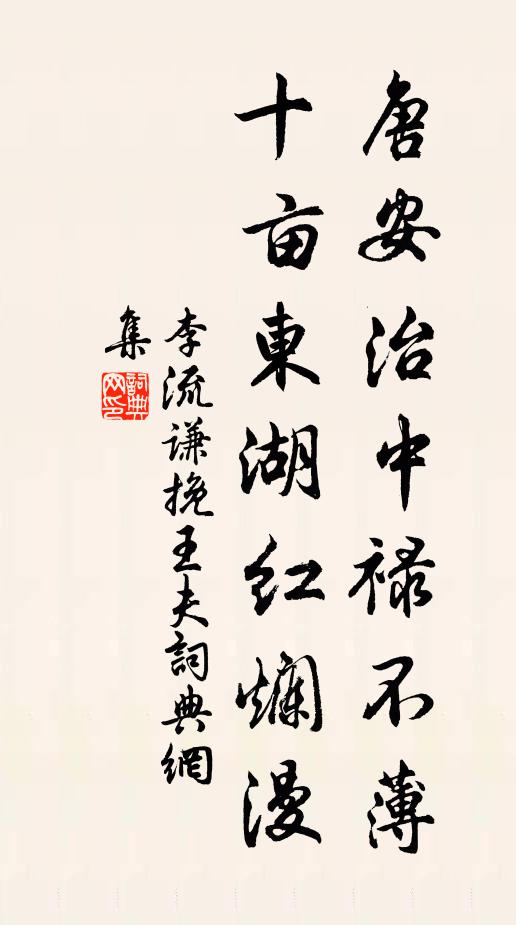 唐安治中禄不薄
十亩東湖红爛漫
李流谦挽王夫詞典網
集
詞典网印